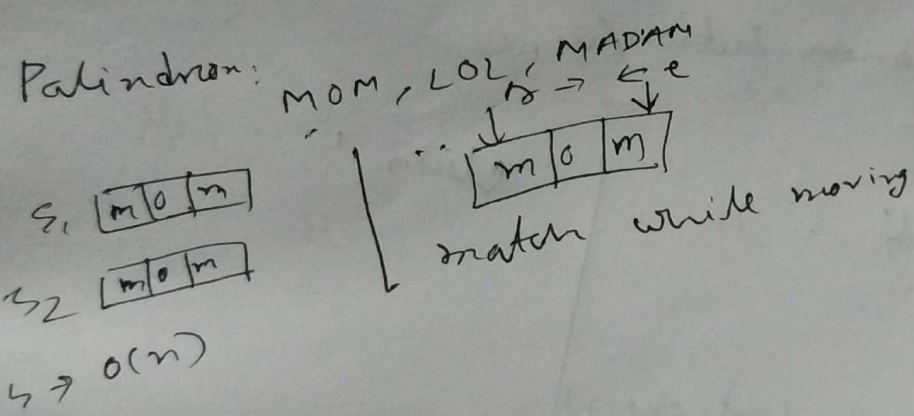 Palindrom: MOM, LOL, MADAM
s → ← e
S1 m o m
m o m
S2 m o m
match while moving
↳ → O(n)